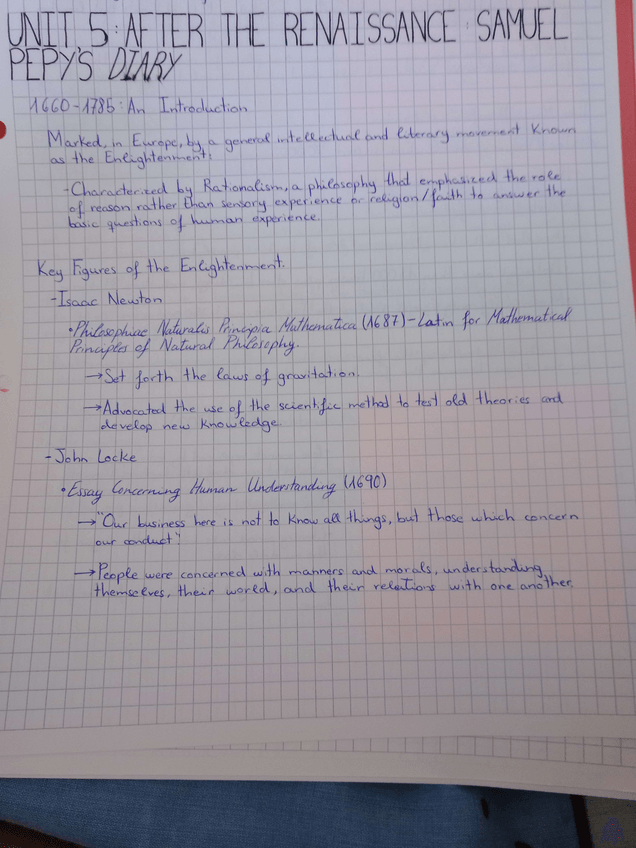 UNIT 5: AFTER THE RENAISSANCE: SAMUEL
PEPY'S DIARY
1660-1785: An Introduction
Marked, in Europe, by a general intellectual and literary movement known
as the Enlightenment:
-Characterized by Rationalism, a philosophy that emphasized the role
of reason rather than sensory experience or religion/faith to answer the
basic questions of human experience.
Key Figures of the Enlightenment.
-Isaac Newton
•Philosophiae Naturalis Principia Mathematica (1687)-Latin for Mathematical
Principles of Natural Philosophy.
→Set forth the laws of gravitation.
→Advocated the use of the scientific method to test old theories and
develop new knowledge.
-John Locke
•Essay Concerning Human Understanding (1690)
→"Our business here is not to know all things, but those which concern
our conduct".
→People were concerned with manners and morals, understanding
themselves, their world, and their relations with one another.